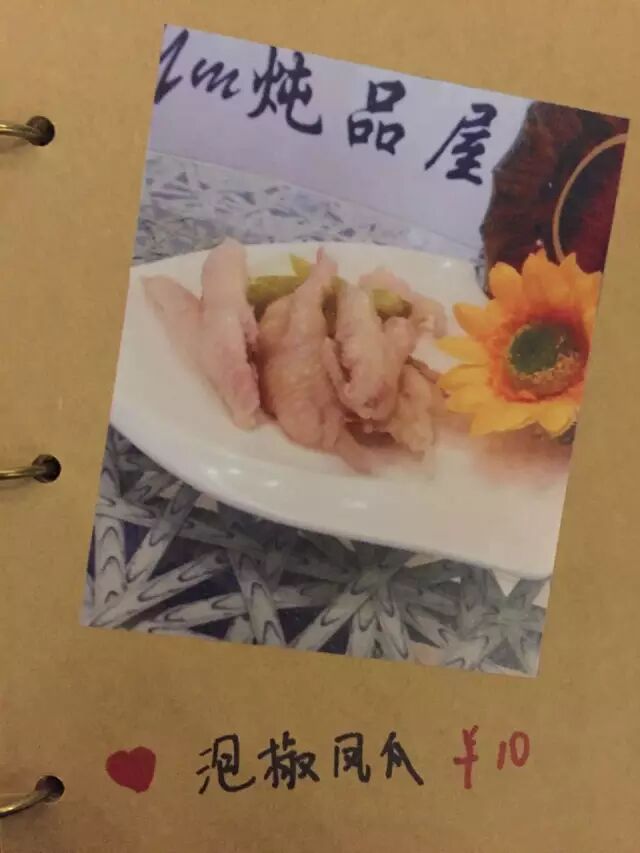 Ym炖品屋
泡椒凤爪 ￥10